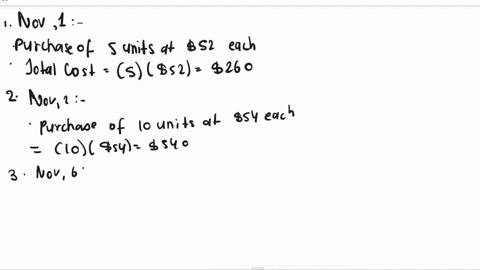 1. Nov, 1 :-
Purchase of 5 units at $52 each
· Total Cost = (5) ($52) = $260
2. Nov, 2 :-
· Purchase of 10 units at $54 each
= (10) ($54) = $540
3. Nov, 6 :